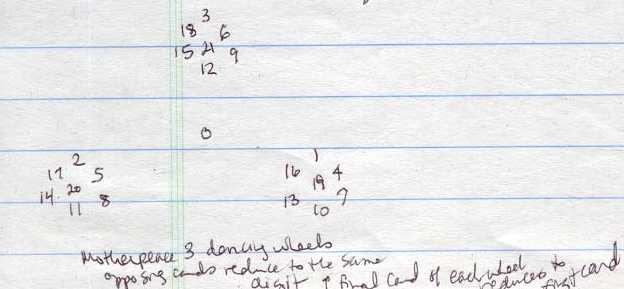 3
18 6
15 21 9
12
0
2
17 5
14 20 8
11
1
16 4
19
13 7
10
Motherpeace 3 dancing wheels
opposing cards reduce to the same
digit & final card of each wheel
reduces to first card